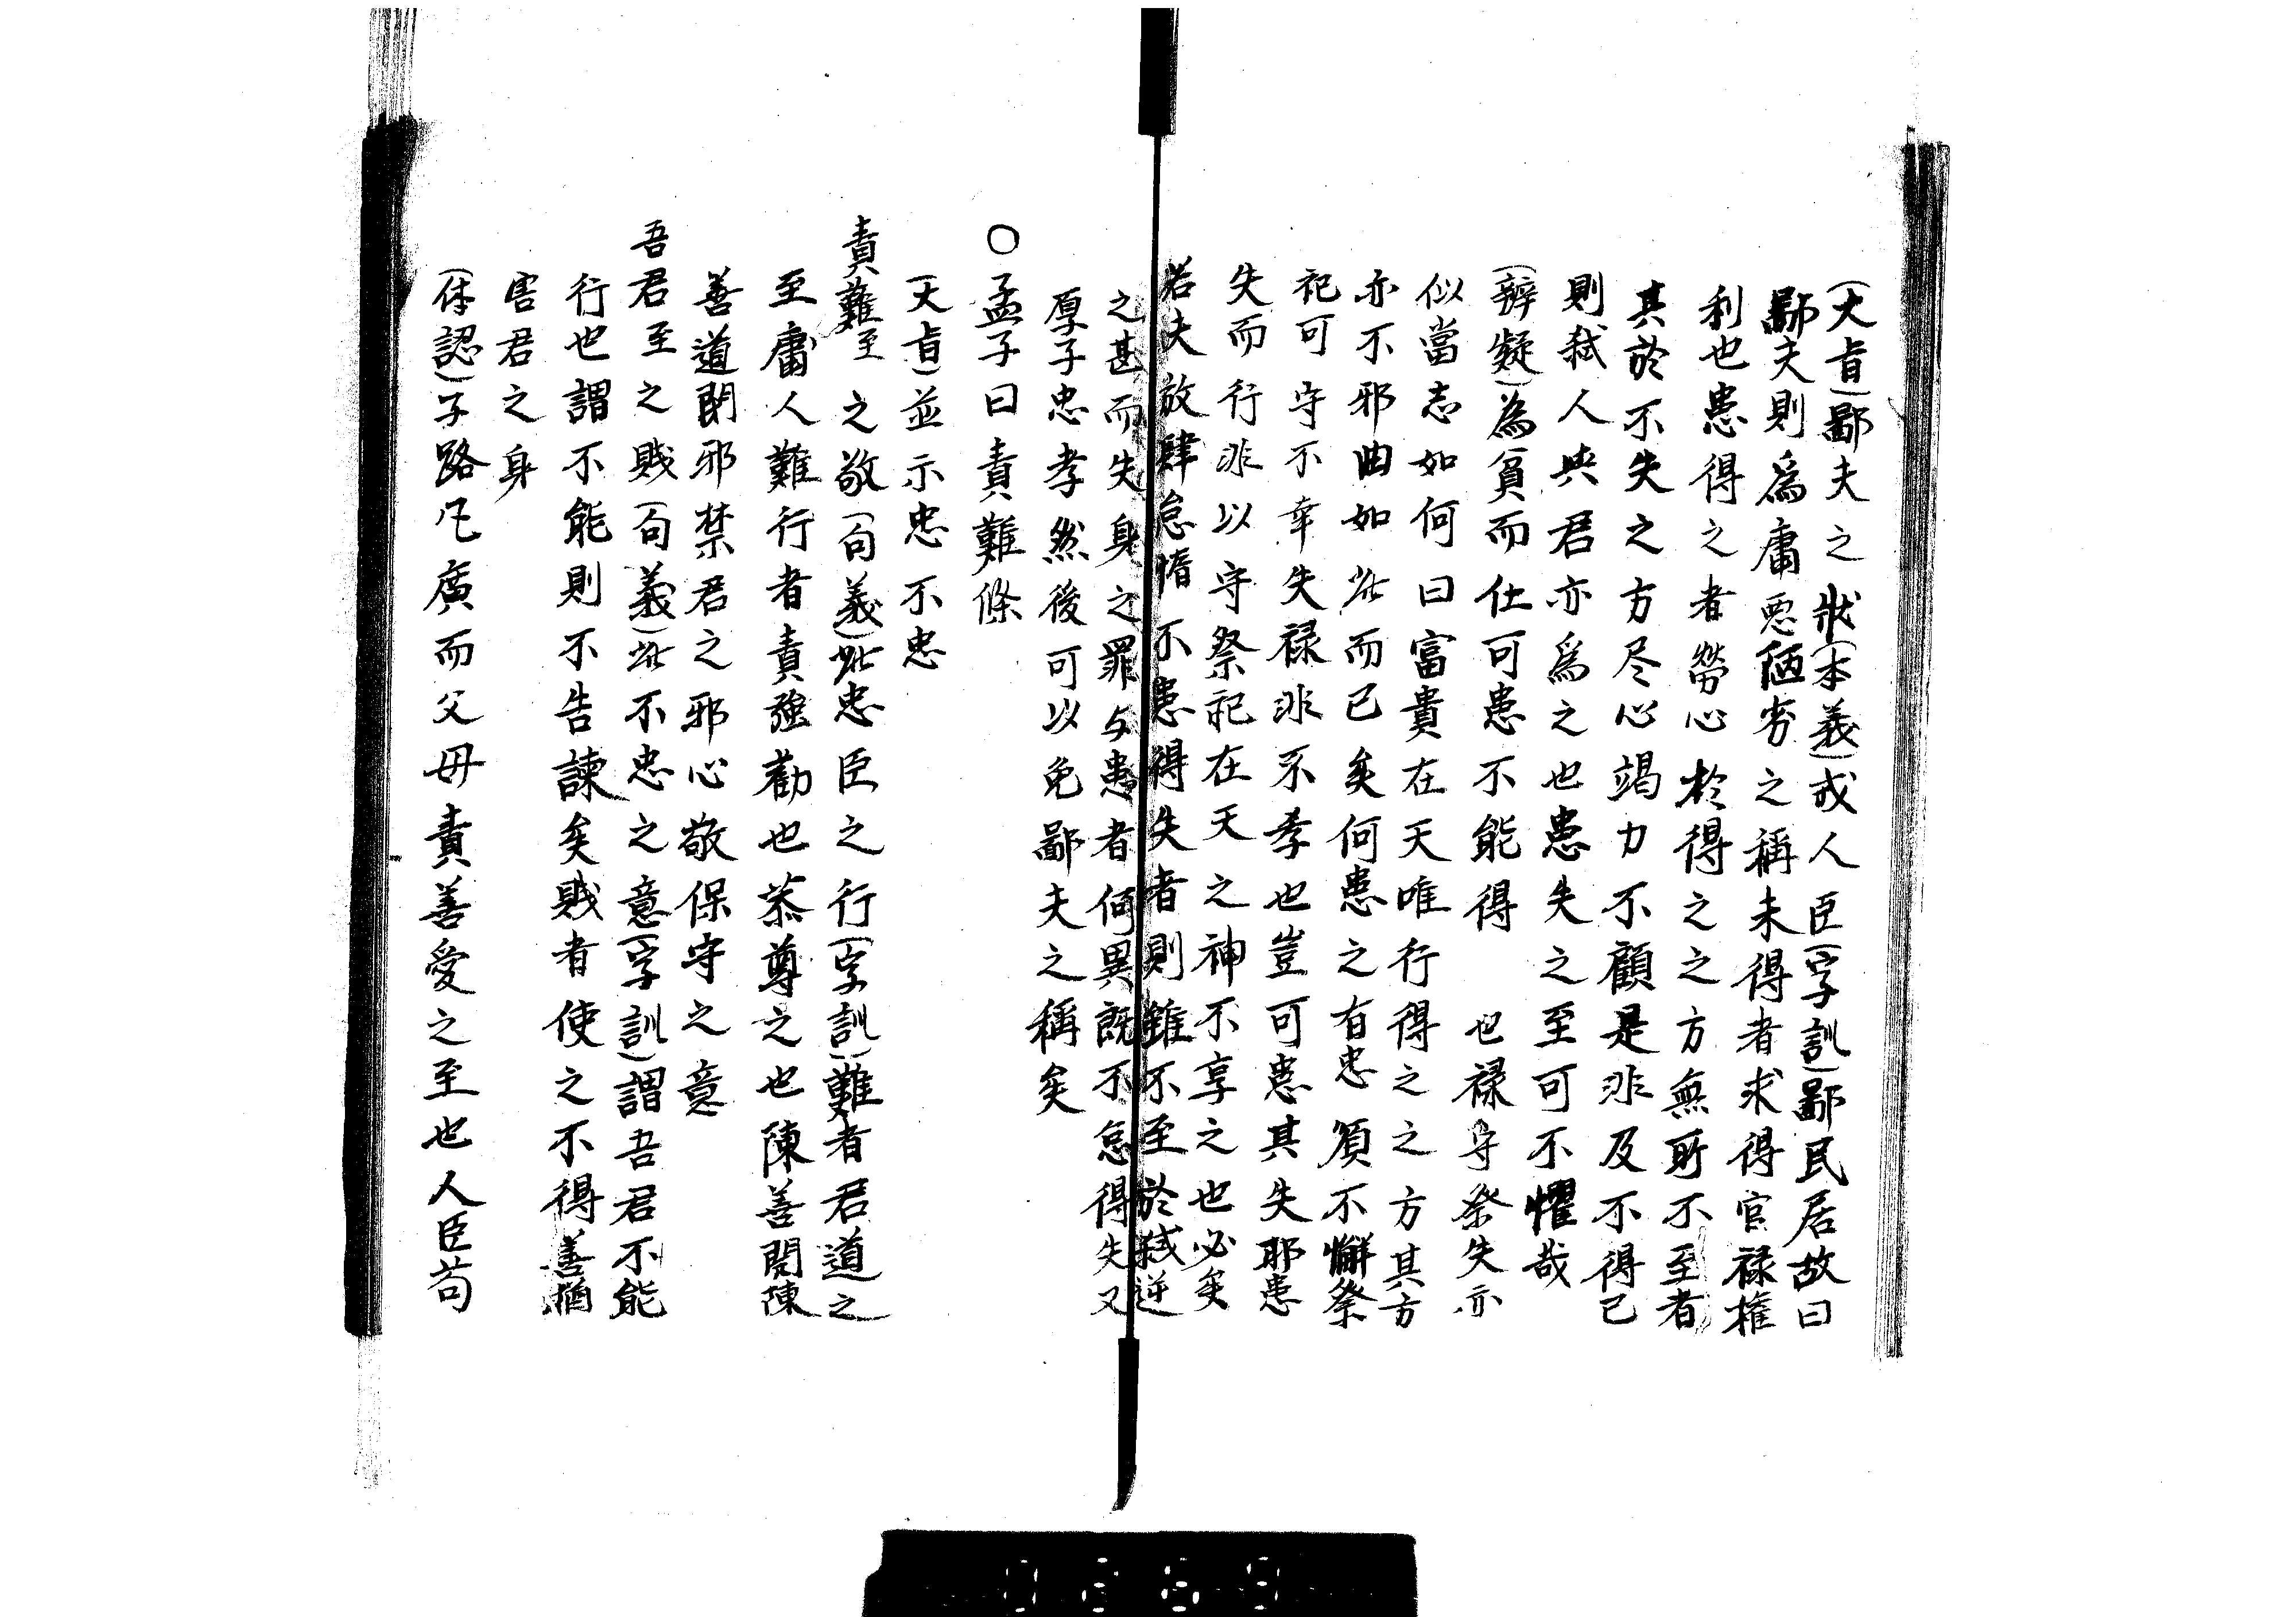 (大旨)鄙夫之狀(本義)戒人臣(字訓)鄙民居故曰
鄙夫則爲庸惡陋劣之稱未得者求得官禄権
利也患得之者勞心於得之之方無所不至者
其於不失之方尽心竭力不顧是非及不得已
則弑人與君亦爲之也患失之至可不懼哉
(辨疑)為貧而仕可患不能得也禄守祭失亦
似當志如何曰富貴在天唯行得之之方其方
亦不邪曲如此而已矣何患之有忠須不懈祭
祀可守不幸失禄非不孝也豈可患其失耶患
失而行非以守祭祀在天之神不享之也必矣
若夫放肆怠惰不患得失者則雖不至於弑逆
之甚而失身之罪与患者何異既不怠得失又
厚子忠孝然後可以免鄙夫之稱矣
○孟子曰責難條
(大旨)並示忠不忠
責難至之敬(句義)此忠臣之行(字訓)難者君道之
至庸人難行者責強勸也恭尊之也陳善閉陳
善道閉邪禁君之邪心敬保守之意
吾君至之賊(句義)此不忠之意(字訓)謂吾君不能
行也謂不能則不告諫矣賊者使之不得善猶
害君之身
(体認)子路凡廣而父母責善愛之至也人臣苟